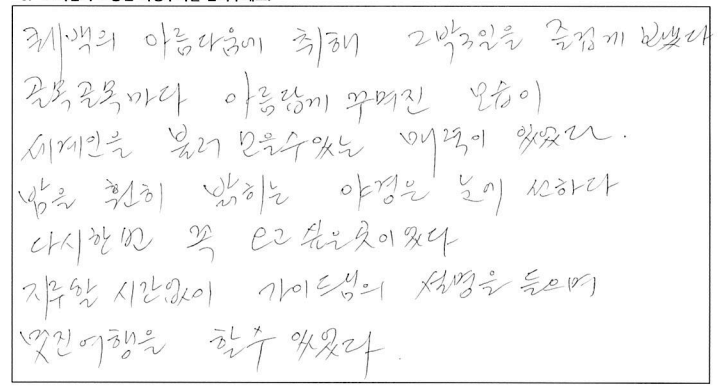 퀘백의 아름다움에 취해 2박3일을 즐겁게 보냈다
골목골목마다 아름답게 꾸며진 모습이
세계인을 불러 모을수있는 매력이 있었다.
밤을 훤히 밝히는 야경은 눈에 선하다
다시한번 꼭 오고 싶은곳이였다
지루할 시간없이 가이드님의 설명을 들으며
멋진여행을 할수 있었다.